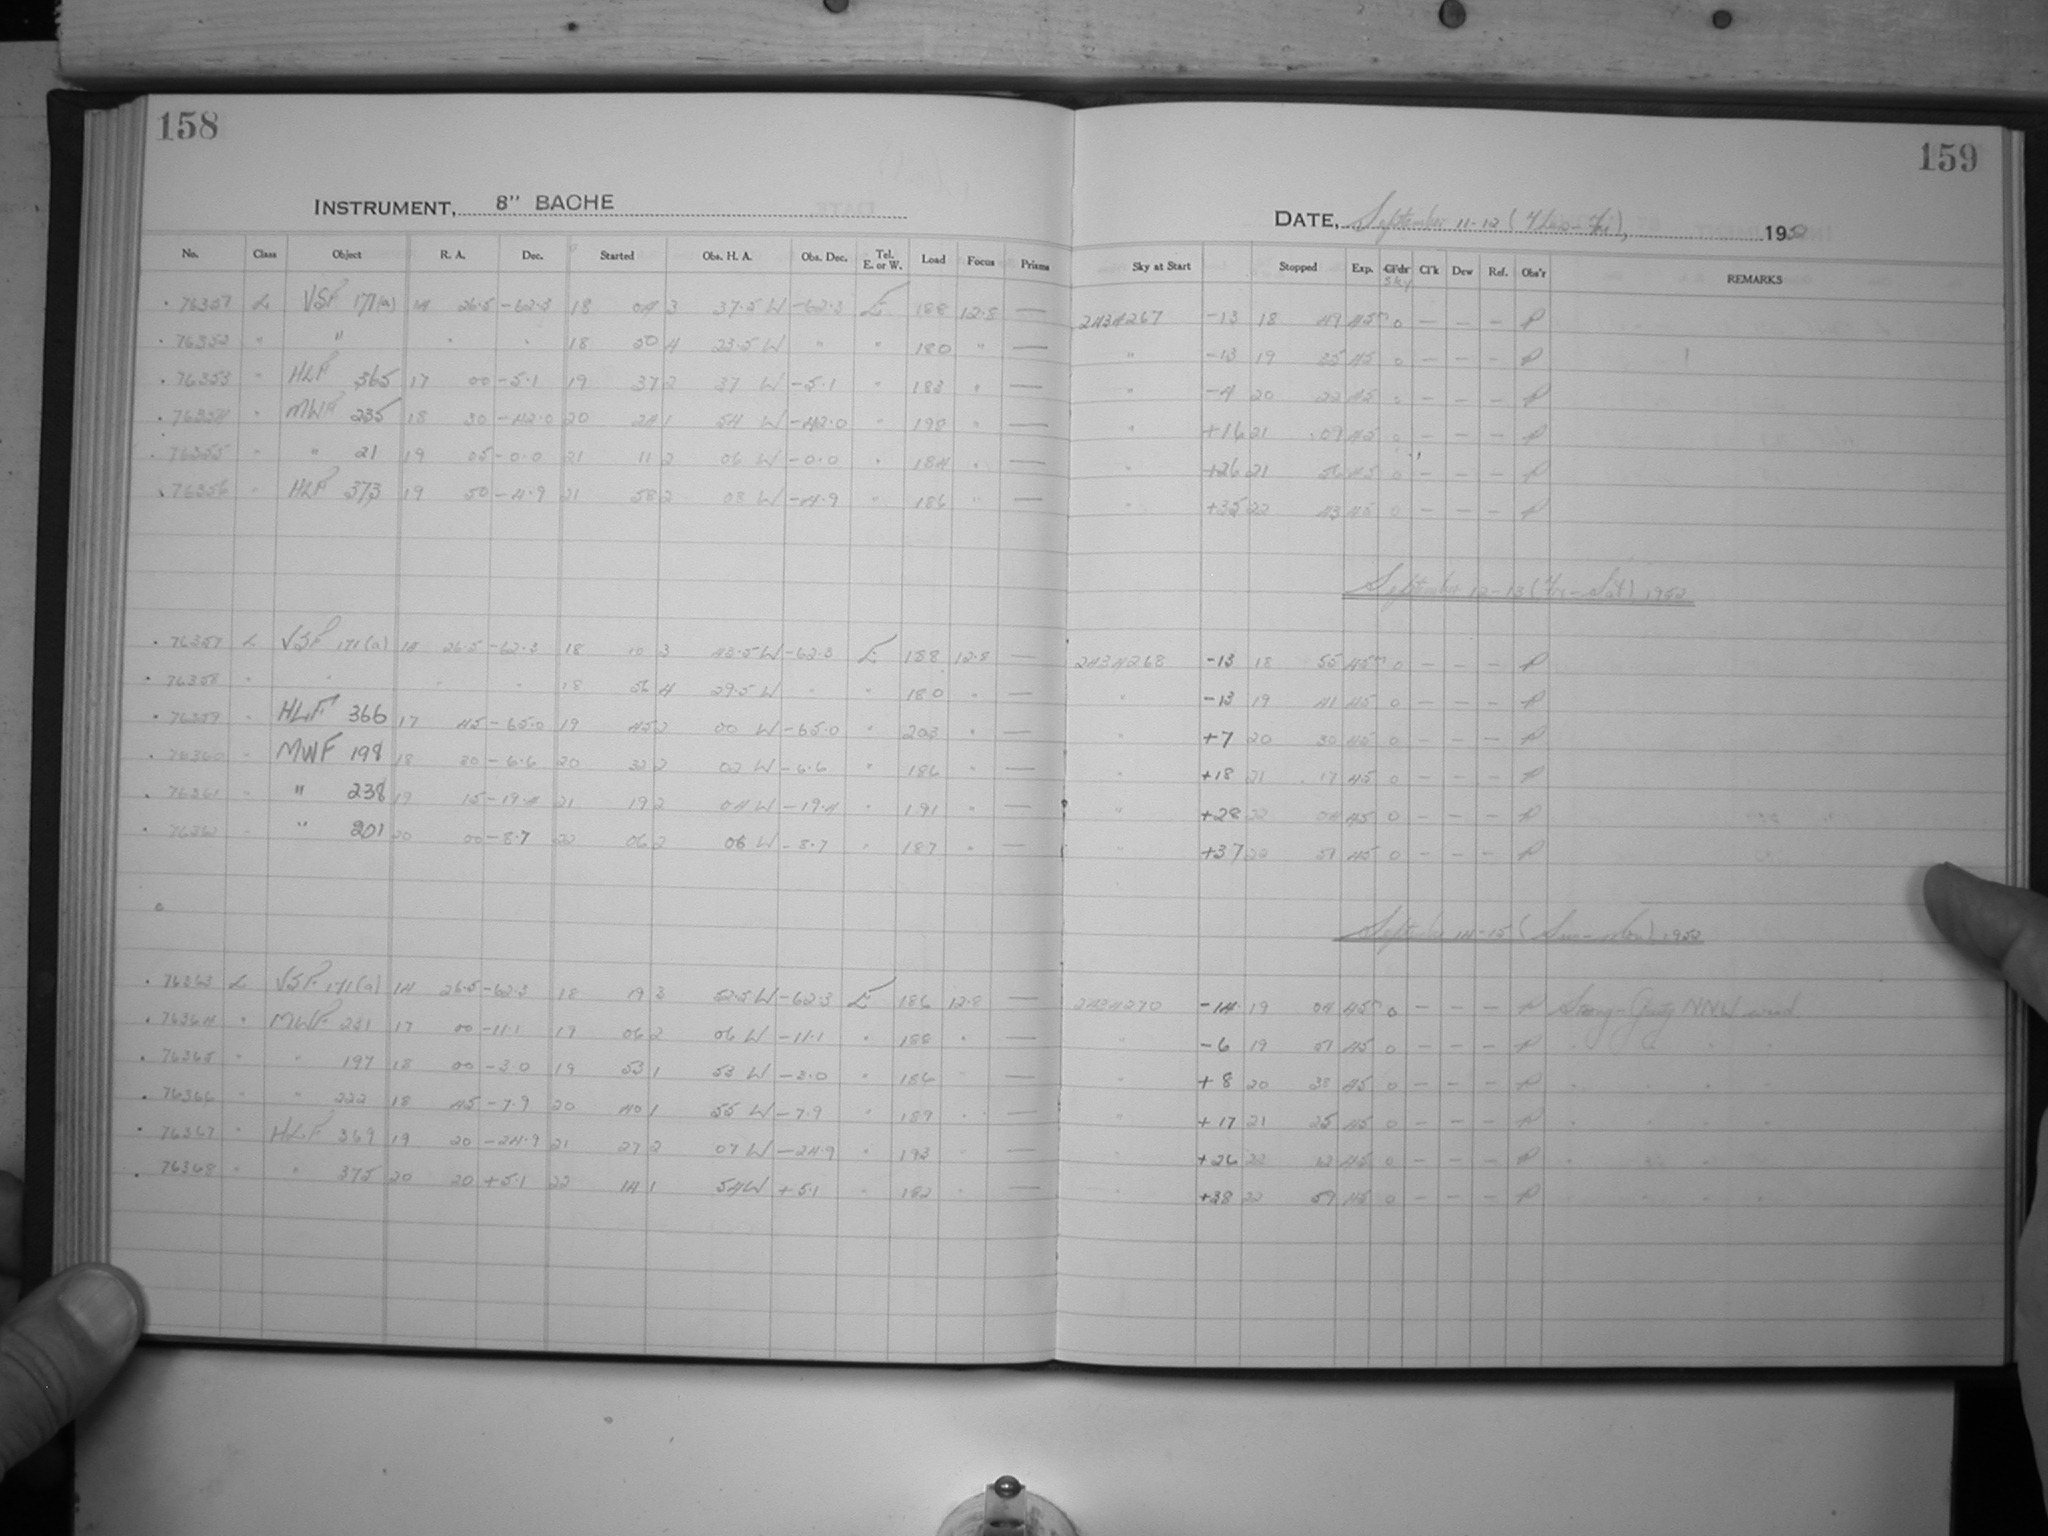 158
159
INSTRUMENT, 8" BACHE
DATE, September 11-12 ( ), 1952
No. Class Object R. A. Dec. Started Obs. H. A. Obs. Dec. Tel. E. or W. Load Focus Prisms Sky at Start Stopped Exp. Cl'dr Sky Cl'k Dew Ref. Obs'r REMARKS
76351 L VSF 171(a) 14 26.5 -62.3 18 04 3 37.5 W -62.3 E 188 12.8 — 2434267 -13 18 49 45 0 — — —
76352 " " " " 18 50 4 23.5 W " " 180 " — " -13 19 35 45 0 — — —
76353 " HLF 365 17 00 -5.1 19 37 2 37 W -5.1 " 183 " — " -4 20 22 45 0 — — —
76354 " MWF 235 18 30 -42.0 20 24 1 54 W -42.0 " 198 " — " +16 21 09 45 0 — — —
76355 " " 21 19 05 -0.0 21 11 2 06 W -0.0 " 184 " — " +26 21 56 45 0 — — —
76356 " HLF 373 19 50 -4.9 21 58 2 08 W -4.9 " 186 " — " +35 22 43 45 0 — — —
September 12-13 (Fri-Sat), 1952
76357 L VSF 171(a) 14 26.5 -62.3 18 10 3 43.5 W -62.3 E 188 12.8 — 2434268 -13 18 55 45 0 — — —
76358 " " " " 18 56 4 29.5 W " " 180 " — " -13 19 41 45 0 — — —
76359 " HLF 366 17 45 -65.0 19 45 2 00 W -65.0 " 203 " — " +7 20 30 45 0 — — —
76360 " MWF 198 18 30 -6.6 20 32 2 02 W -6.6 " 186 " — " +18 21 17 45 0 — — —
76361 " " 238 19 15 -19.4 21 19 2 04 W -19.4 " 191 " — " +28 22 04 45 0 — — —
76362 " " 201 20 00 -8.7 22 06 2 06 W -8.7 " 187 " — " +37 22 51 45 0 — — —
September 14-15 (Sun-Mon), 1952
76363 L VSF 171(a) 14 26.5 -62.3 18 19 3 52.5 W -62.3 E 186 12.8 — 2434270 -14 19 04 45 0 — — — Strong-Gusty NNW wind.
76364 " MWF 231 17 00 -11.1 19 06 2 06 W -11.1 " 188 " — " -6 19 51 45 0 — — — " " " "
76365 " " 197 18 00 -3.0 19 53 1 53 W -3.0 " 186 " — " +8 20 38 45 0 — — — " " " "
76366 " " 222 18 45 -7.9 20 40 1 55 W -7.9 " 189 " — " +17 21 25 45 0 — — — " " " "
76367 " HLF 369 19 20 -24.9 21 27 2 07 W -24.9 " 193 " — " +26 22 12 45 0 — — — " " " "
76368 " " 375 20 20 +5.1 22 14 1 54 W +5.1 " 182 " — " +38 22 59 45 0 — — — " " " "